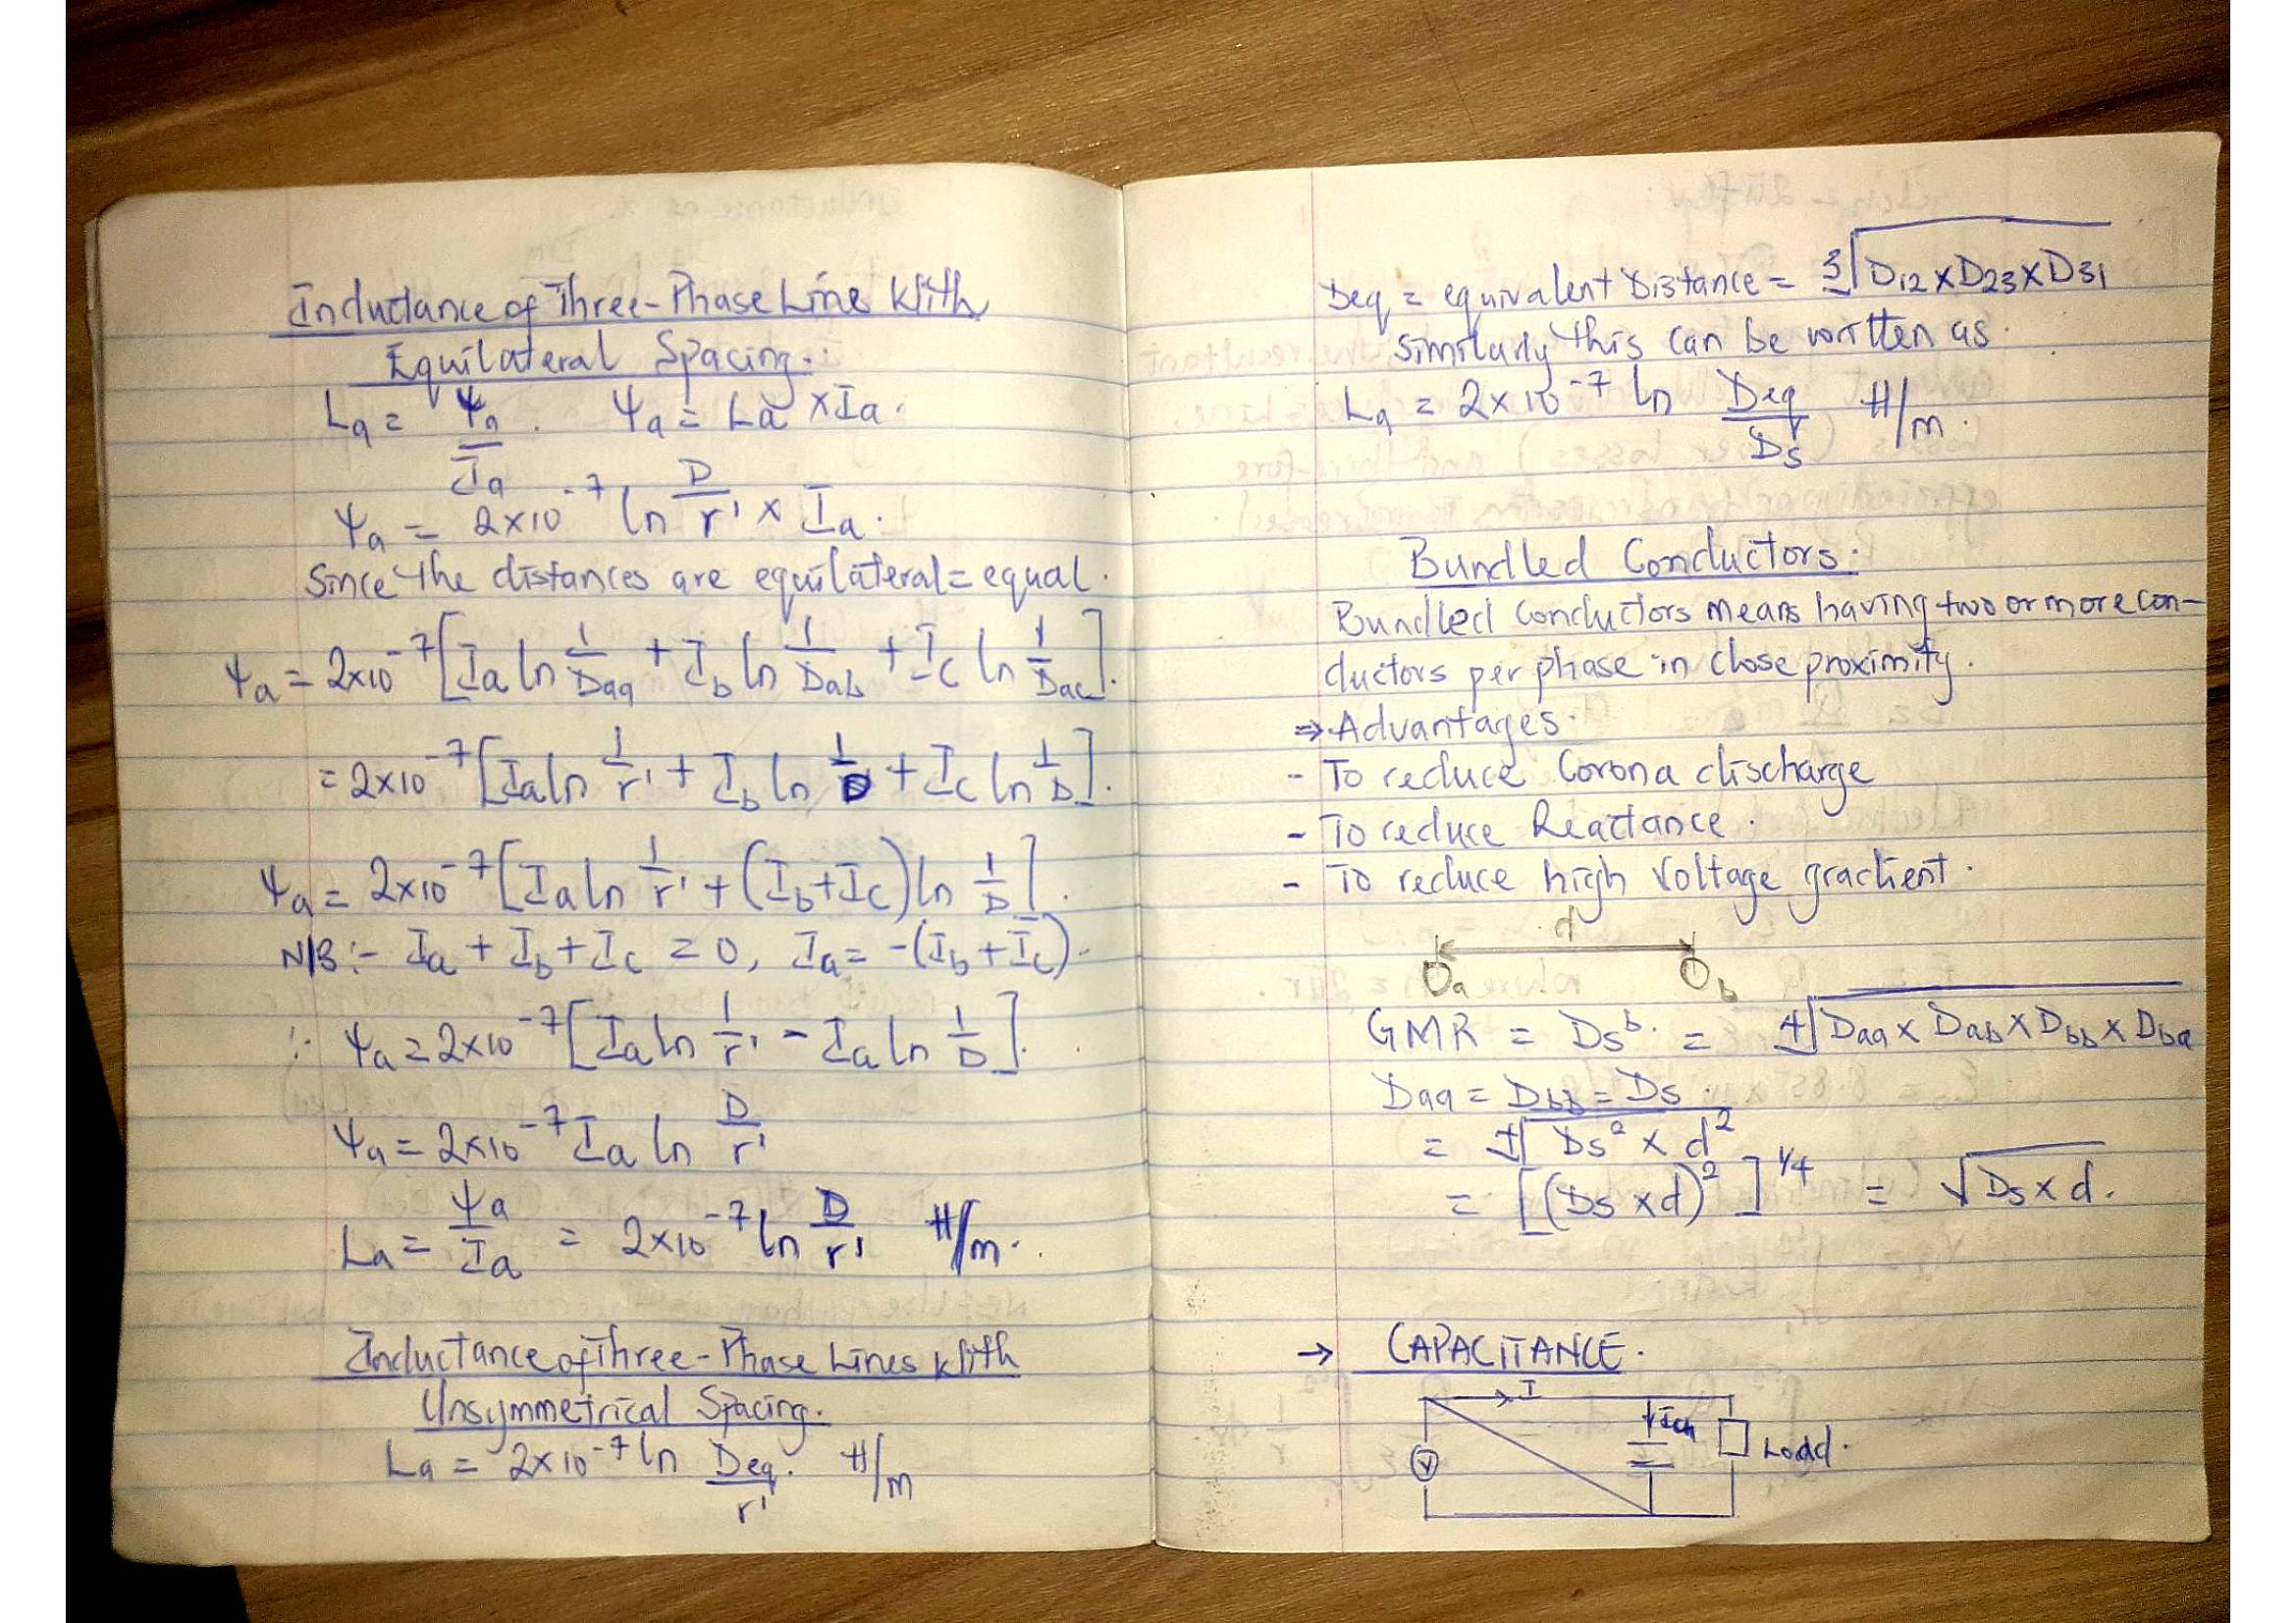 Inductance of Three-Phase Line With
Equilateral Spacing.
La = Ψa/Ia. Ψa = La × Ia.
Ψa = 2×10^-7 ln D/r' × Ia.
Since the distances are equilateral = equal.
Ψa = 2×10^-7 [Ia ln 1/Daa + Ib ln 1/Dab + Ic ln 1/Dac].
= 2×10^-7 [Ia ln 1/r' + Ib ln 1/D + Ic ln 1/D].
Ψa = 2×10^-7 [Ia ln 1/r' + (Ib+Ic) ln 1/D].
N/B:- Ia + Ib + Ic = 0, Ia = -(Ib + Ic).
∴ Ψa = 2×10^-7 [Ia ln 1/r' - Ia ln 1/D].
Ψa = 2×10^-7 Ia ln D/r'
La = Ψa/Ia = 2×10^-7 ln D/r' H/m.
Inductance of Three-Phase Lines With
Unsymmetrical Spacing.
La = 2×10^-7 ln Deq./r' H/m
Deq = equivalent Distance = ∛(D12 × D23 × D31)
Similarly this can be written as.
La = 2×10^-7 ln Deq/Ds H/m.
Bundled Conductors.
Bundled Conductors means having two or more con-
ductors per phase in close proximity.
⇒ Advantages.
- To reduce Corona discharge
- To reduce Reactance.
- To reduce high Voltage gradient.
d
a b
GMR = Ds^b. = ∜(Daa × Dab × Dbb × Dba)
Daa = Dbb = Ds.
= ∜(Ds² × d²)
= [(Ds × d)²]^1/4 = √(Ds × d).
→ CAPACITANCE.
I
Ich
V Load.